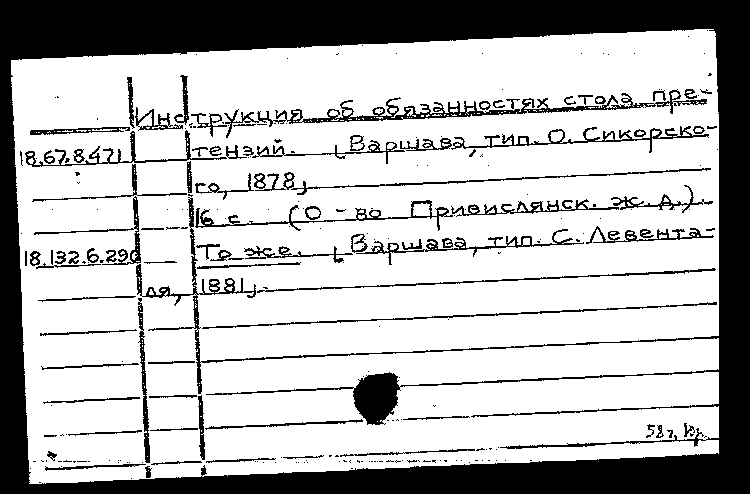 Инструкция об обязанностях стола пре-
18.67.8.471 тензий. [Варшава, тип. О. Сикорско-
го, 1878]
16 с. (О-во Привислянск. ж. д.).
18.132.6.290 — То же. [Варшава, тип. С. Левента-
ля, 1881].
58 г.